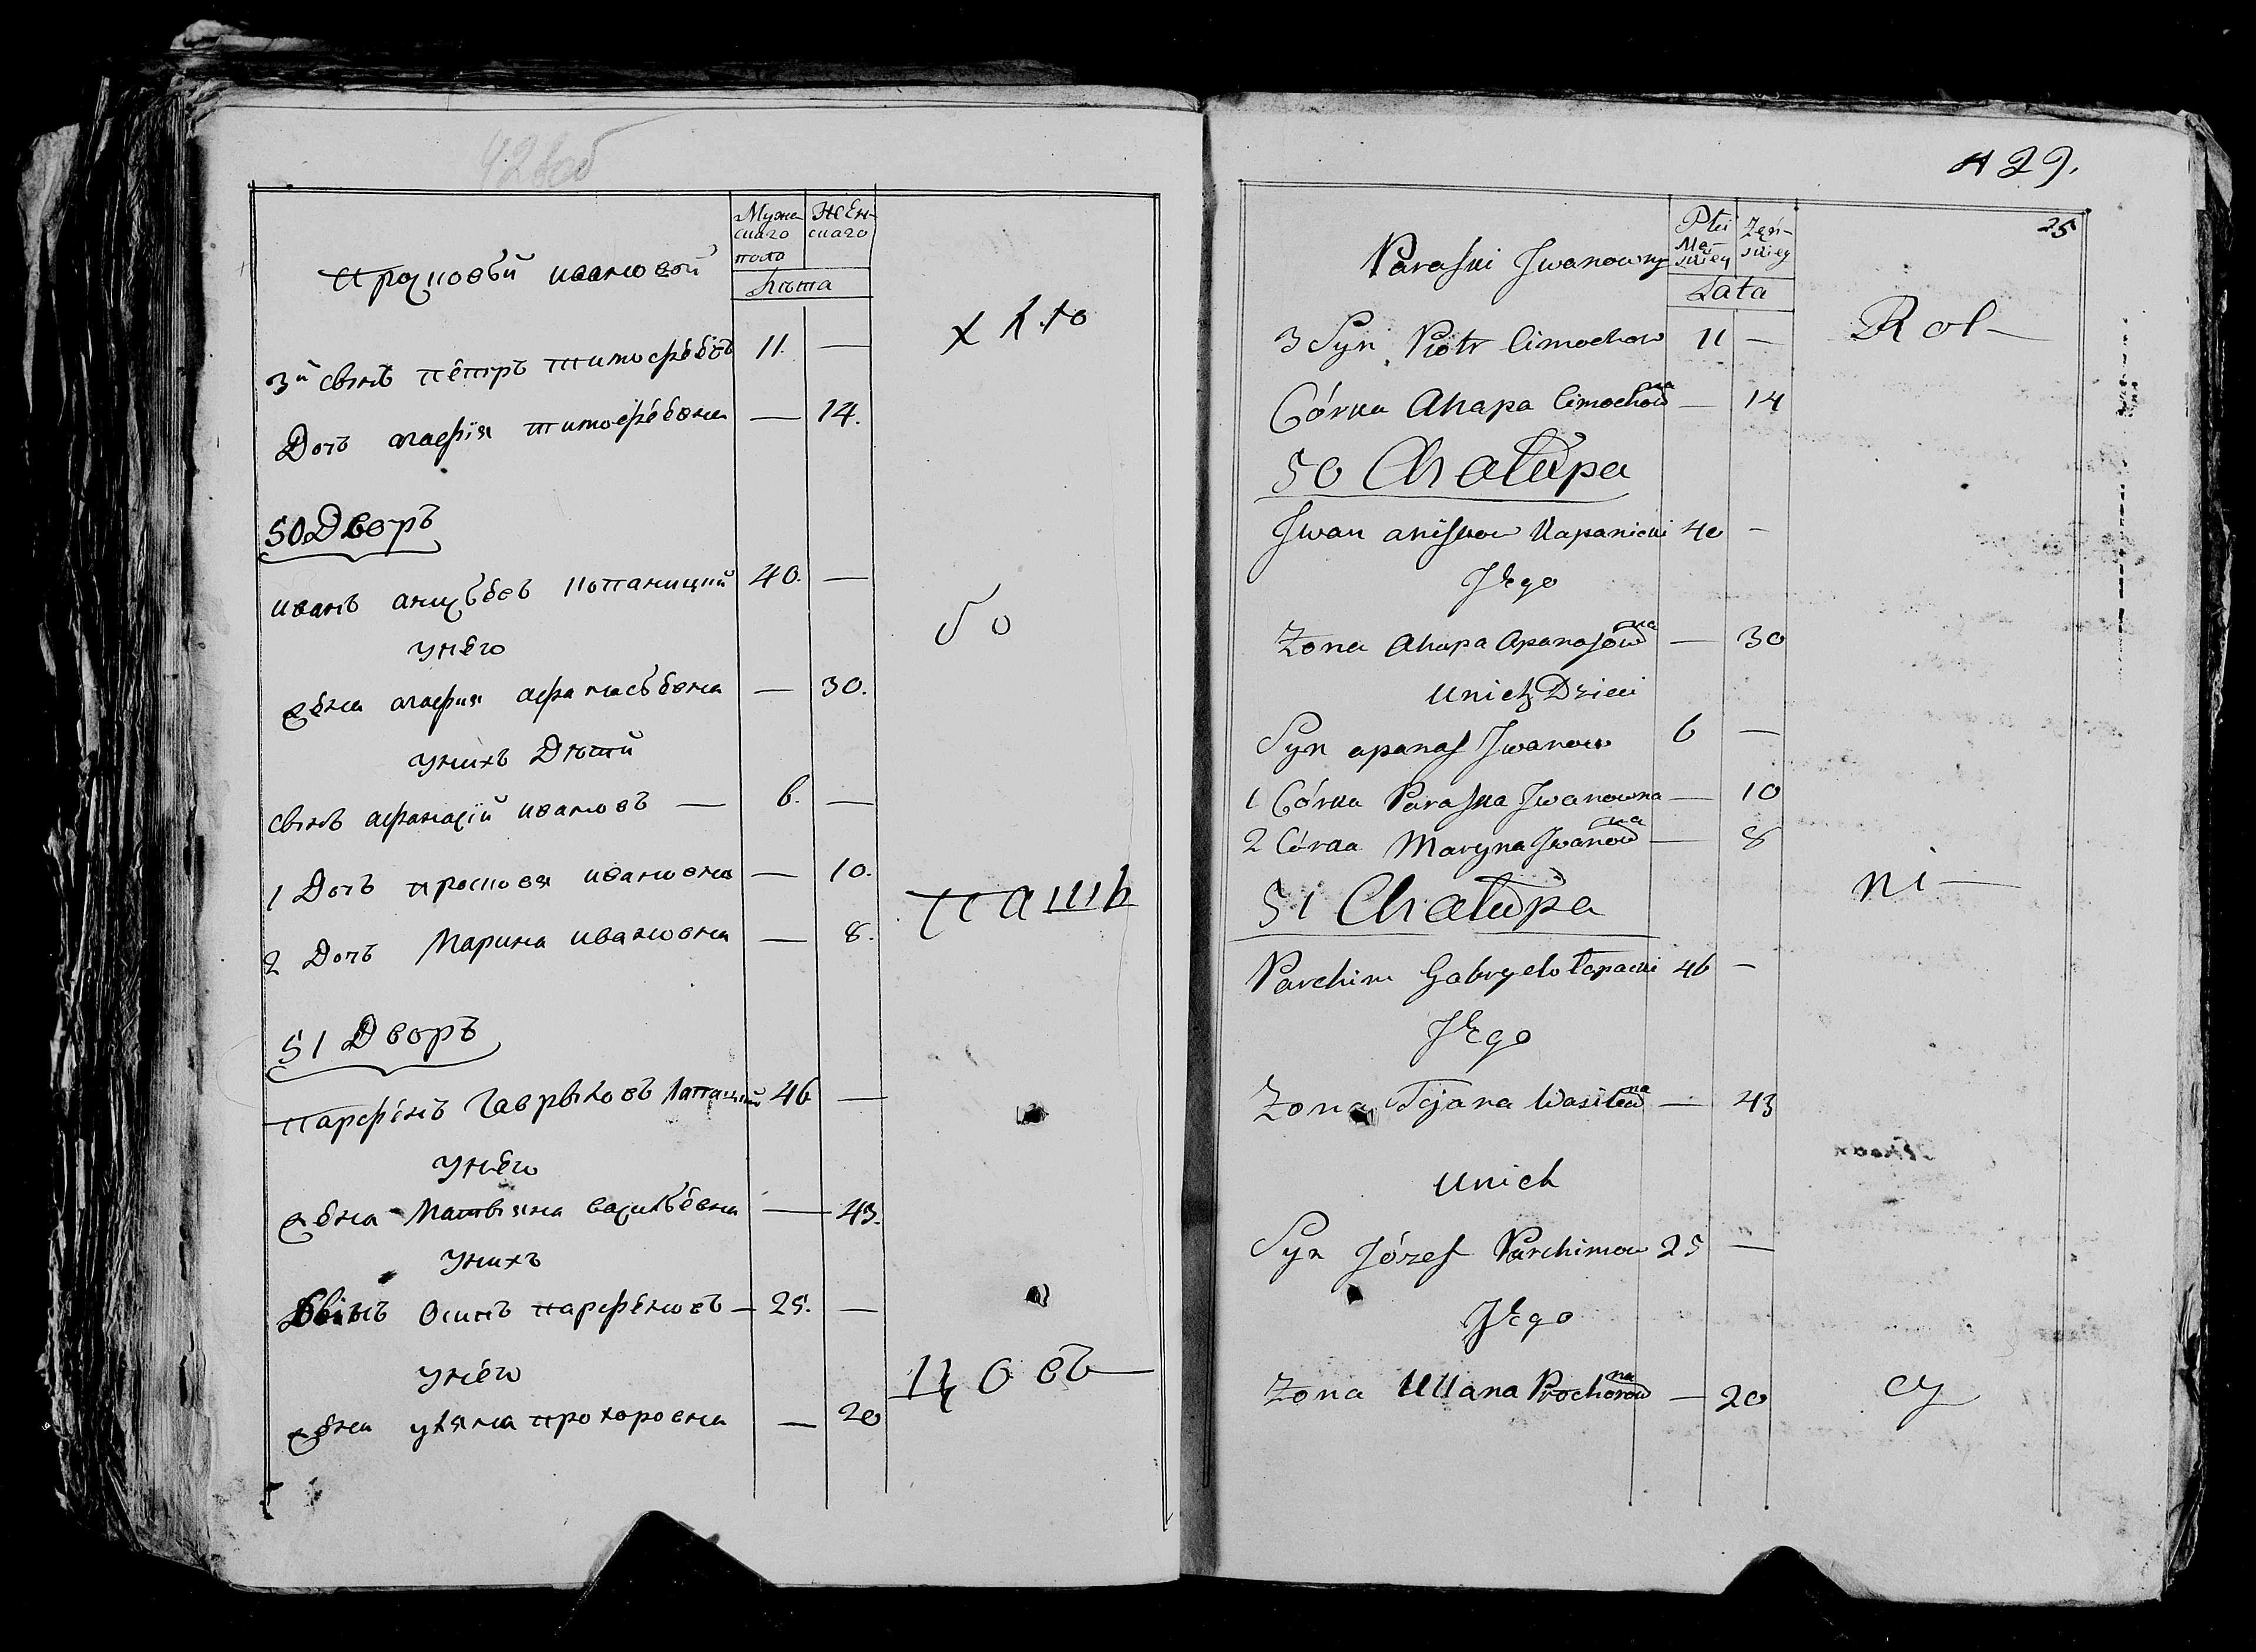 42 об
Мужескаго пола
Женскаго
Лѣта
Прасковьи ивановой
3й сынъ петръ тимофеевъ 11. —
Дочь агафiя тимофеевна — 14.
50 Дворъ
иванъ анисьевъ Копаницкий 40. —
унего
жена агафия афанасьевна — 30.
унихъ Дѣти
сынъ афанасiй ивановъ — 6. —
1 Дочь прасковя ивановна — 10.
2 Дочь Марина ивановна — 8.
51 Дворъ
парфенъ Гаврыловъ Лапацкий 46 —
унего
жена Матвияна васильевна — 43.
унихъ
Сынъ Осипъ парфеновъ — 25. —
унего
жена уляна прохоровна — 20
х лѣ
бо
паш
цовъ
29.
25
Płci Męskiey
Żeńskiey
Lata
Paraski Iwanowny
3 Syn Piotr Cimochow 11 —
Córka Ahapa Cimochowna — 14
50 Chałupa
Iwan aniskow Kapanicki 40 —
Jego
Zona Ahapa Apanasowna — 30
Unich Dzieci
Syn apanas Iwanow 6 —
1 Córka Paraska Iwanowna — 10
2 Córka Maryna Iwanowna — 8
51 Chałupa
Parchim Gabryelo Łapacki 46 —
Jego
Zona Tejana Wasilewna — 43
Unich
Syn Józef Parchimow 25 —
Jego
Zona Ullana Prochorowna — 20
Rol—
ni—
cy